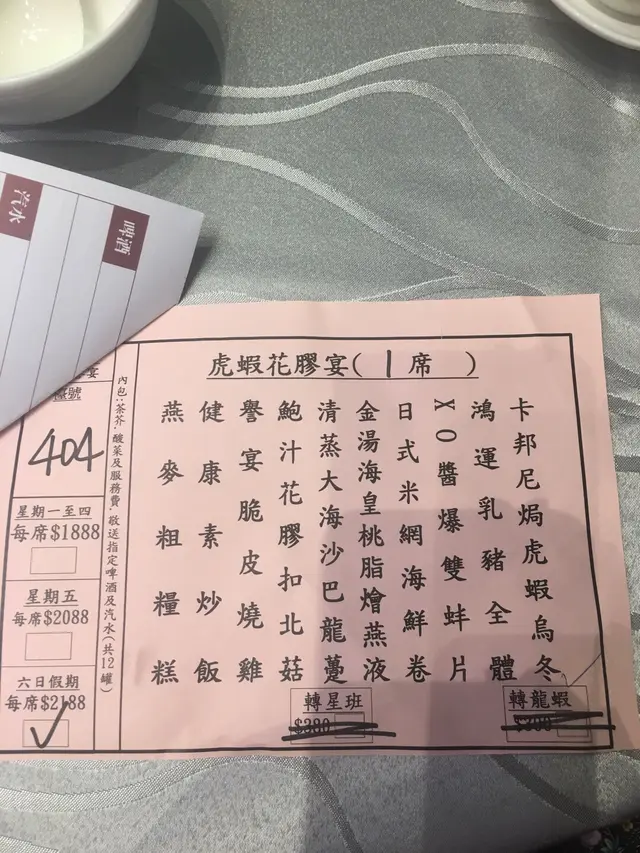 汽水
啤酒
虎蝦花膠宴(1席)
卡邦尼焗虎蝦烏冬
鴻運乳豬全體
XO醬爆雙蚌片
日式米網海鮮卷
金湯海皇桃脂燴燕液
清蒸大海沙巴龍躉
鮑汁花膠扣北菇
譽宴脆皮燒雞
健康素炒飯
燕麥粗糧糕
轉龍蝦
轉星班
$380
內包:茶芥、酸菜及服務費、敬送指定啤酒及汽水(共12罐)
宴
號
404
星期一至四
每席$1888
星期五
每席$2088
六日假期
每席$2188
✓